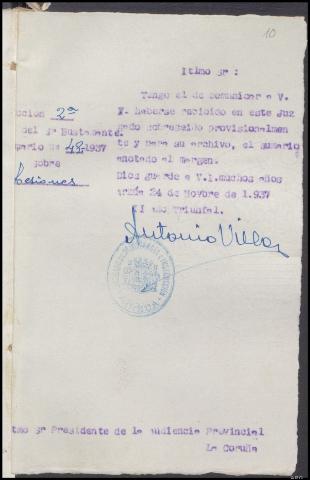 10
Itlmo Sr :
Tengo el de comunicar a V.
Y. haberse recicido en este Juz
gado sobreseido provisionalmen
te y para su archivo, el sumario
anotado al margen.
Dios guarde a V.I.muchos años
24 de Novbre de 1.937
II Año Triunfal.
ccion 2ª
del Sr Bustamante.
ario nº 48-1937
sobre
Lesiones
Antonio Villar
tmo Sr Presidente de la Audiencia Provincial
La Coruña